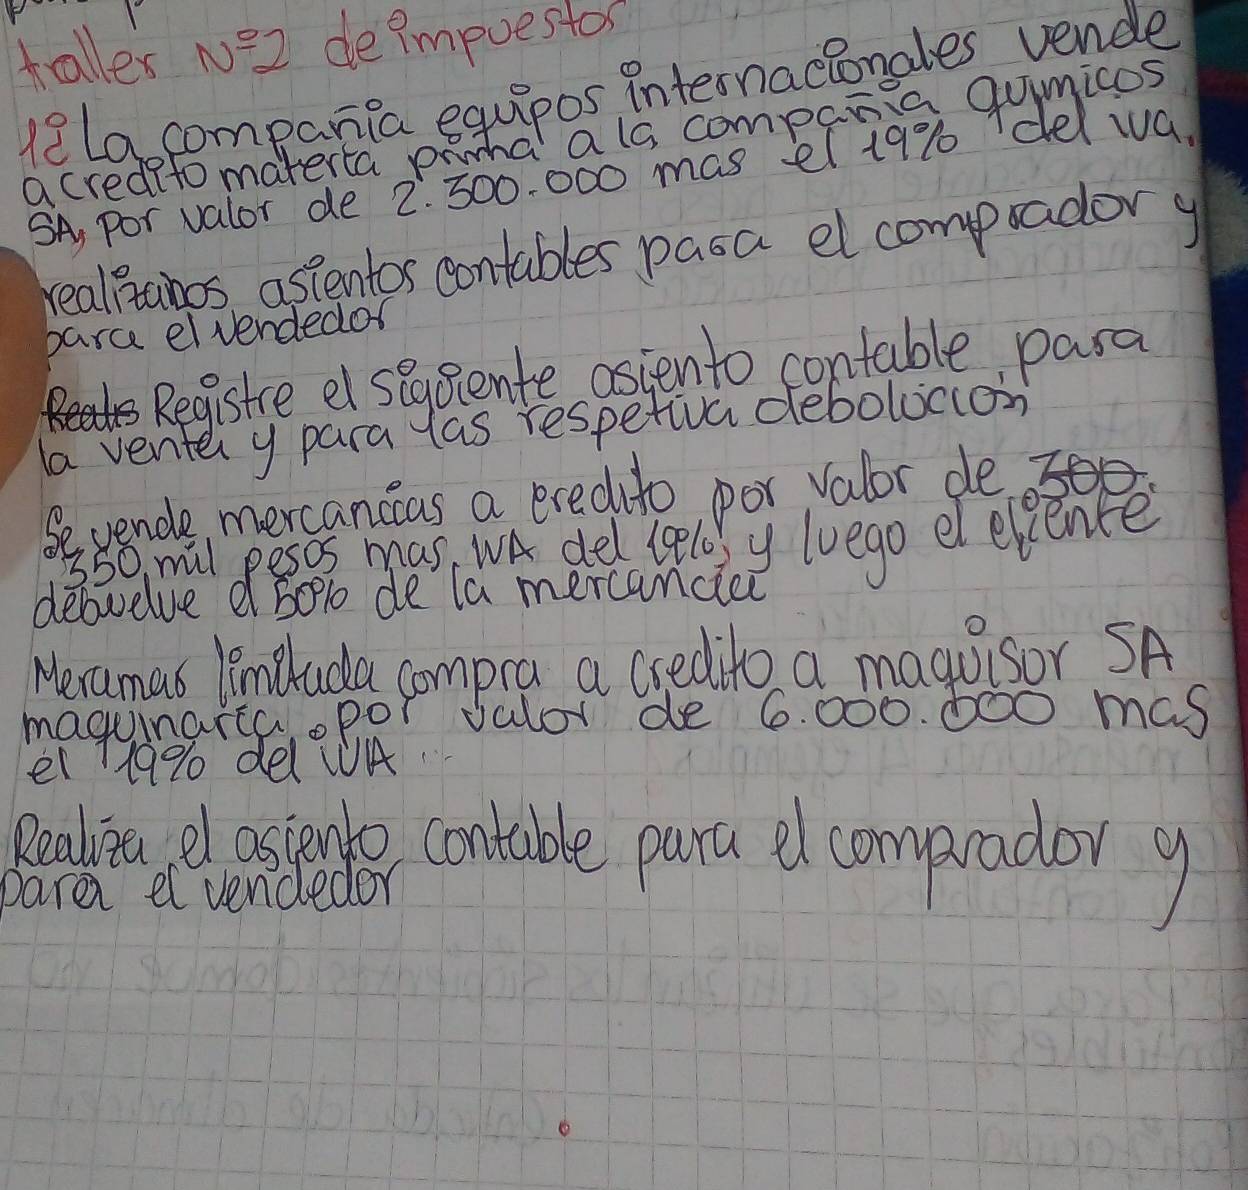 traller Nº2 de impuestos
1ª La compañia equipos internacionales vende
a credito materia prima a la compañia quimicos
SA, por valor de 2.300.000 mas el 19% del iva.
realizamos asientos contables para el comprador y
para el vendedor
Registre el siguiente asiento contable, para
la venta y para las respetiva debolución
Se vende mercancias a credito por valor de 300.
350 mil pesos mas IVA del 19%, y luego el cliente
debuelve el 50% de la mercancia
Meramas limitada compra a credito a maquisor SA
maquinaria por valor de 6.000.000 mas
el 19% del IVA
Realiza el asiento contable para el comprador y
para el vendedor